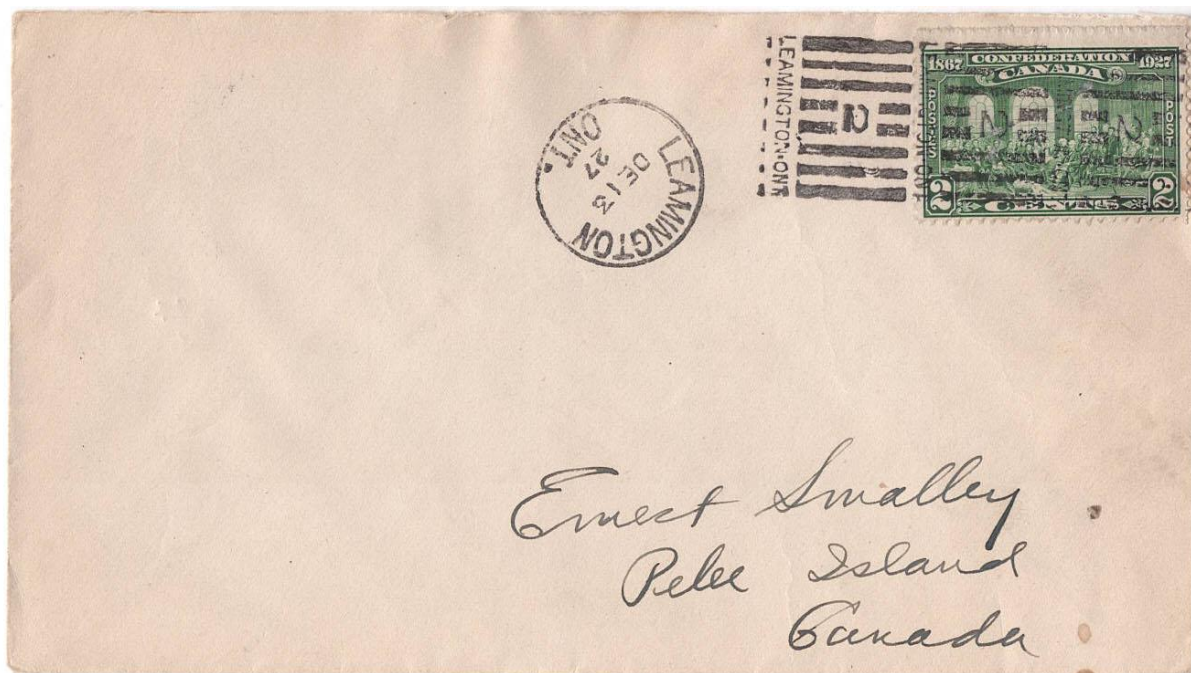 LEAMINGTON
ONT.
DE 13
27
LEAMINGTON-ONT
2
1867 CONFEDERATION 1927
CANADA
POSTES
POST
2 CENTS 2
Ernest Smalley
Pelee Island
Canada